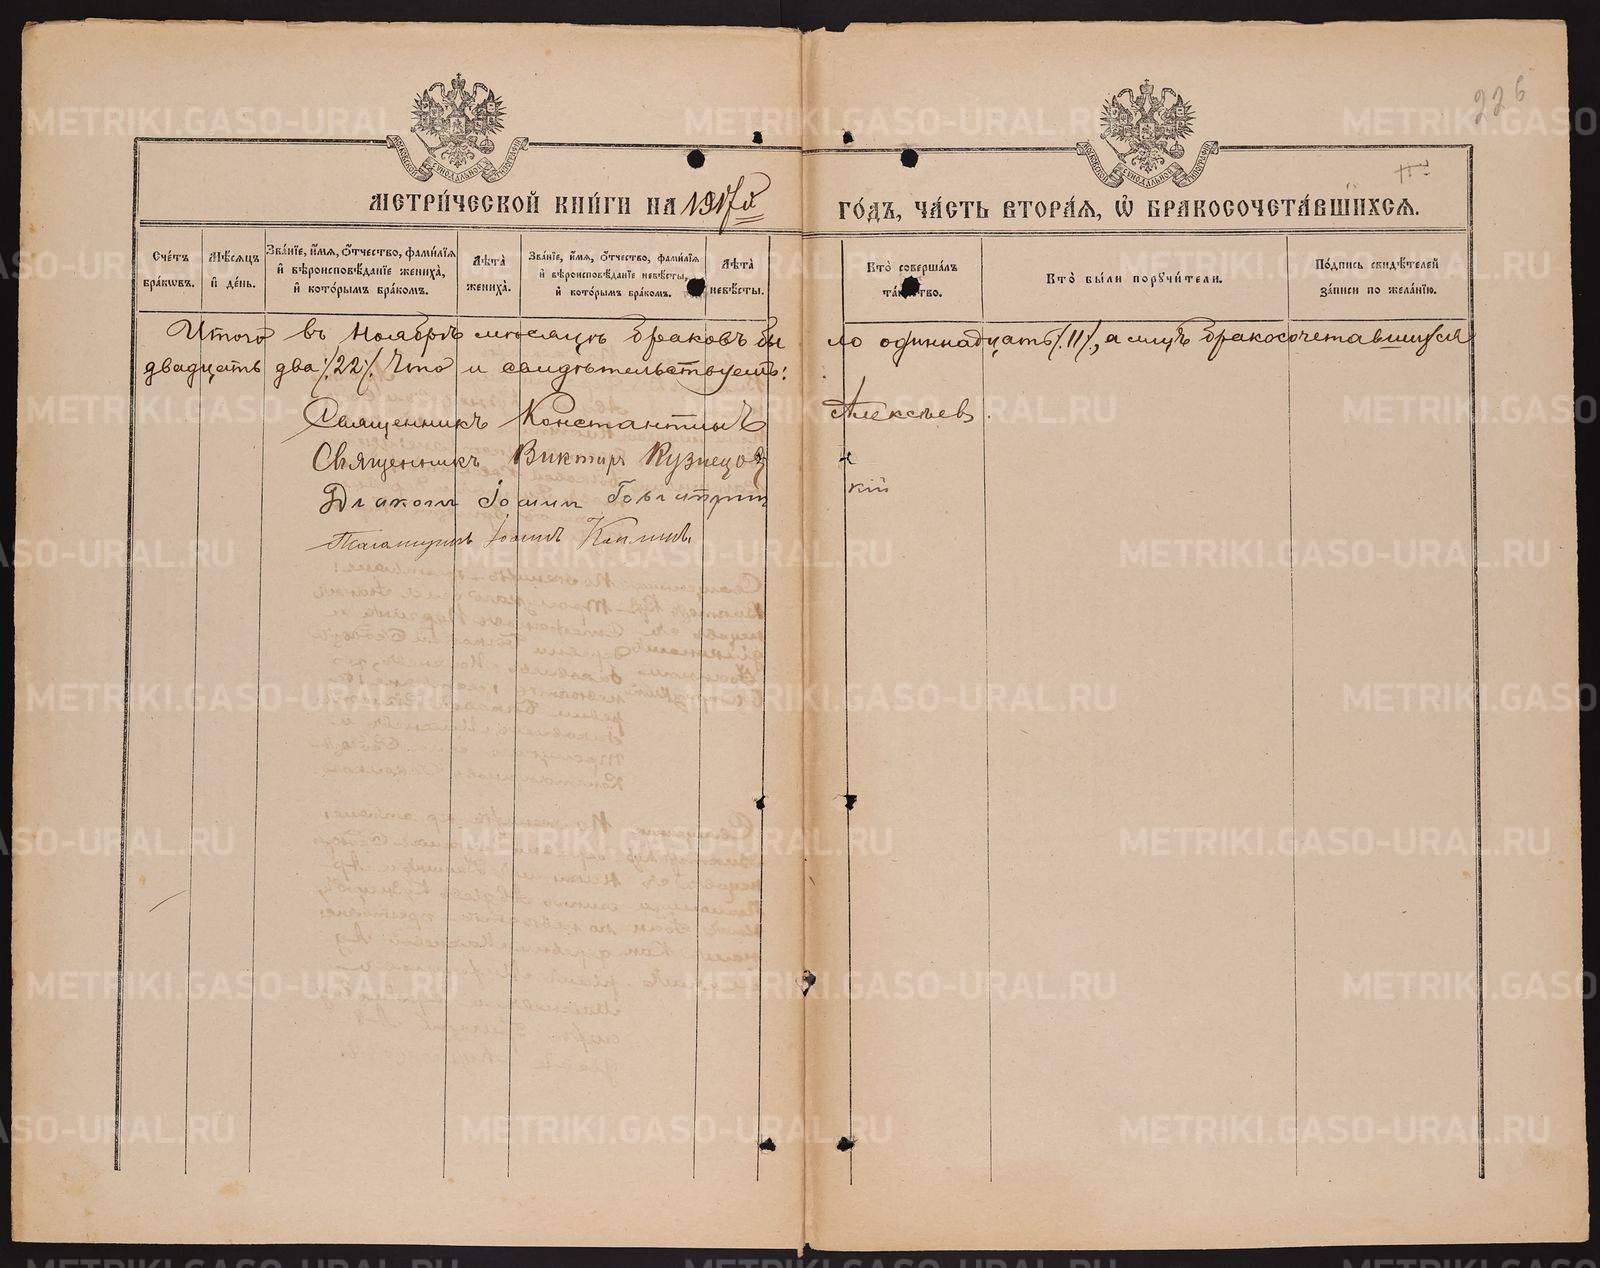 226
МЕТРИ́ЧЕСКОЙ КНИ́ГИ НА 1917й ГО́ДЪ, ЧА́СТЬ ВТОРА́Ѧ, Ѿ БРАКОСОЧЕТА́ВШИХСѦ.
Сче́тъ бра́ковъ.
Мѣ́сѧцъ и҆ де́нь.
Зва́нїе, и҆́мѧ, ѻ҆́тчество, фами́лїѧ и҆ вѣроисповѣ́данїе жениха̀, и҆ кото́рымъ бра́комъ.
Лѣ̀та жениха̀.
Зва́нїе, и҆́мѧ, ѻ҆́тчество, фами́лїѧ и҆ вѣроисповѣ́данїе невѣ́сты, и҆ кото́рымъ бра́комъ.
Лѣ̀та невѣ́сты.
Кто̀ соверша́лъ та́инство.
Кто̀ бы́ли порꙋчи́тели.
По́дпись свидѣ́телей за́писи по жела́нїю.
Итого въ Ноябрѣ мѣсяцѣ браковъ было одиннадцать /.11/., а лицъ бракосочетавшихся
двадцать два /.22/. Что и свидѣтельствуемъ:
Священникъ Константинъ Алексѣев.
Священникъ Викторъ Кузнецов
Діаконъ Іоаннъ кій
Псаломщикъ Іоаннъ
METRIKI.GASO-URAL.RU